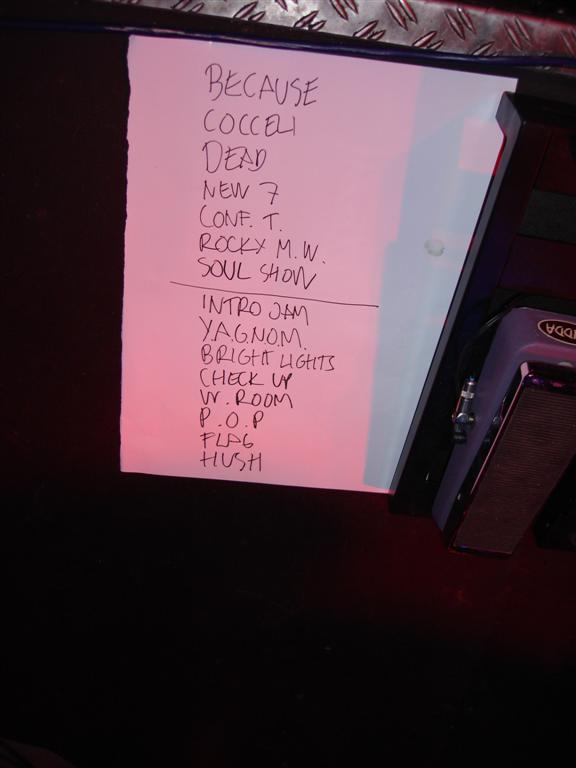 BECAUSE
COCCELI
DEAD
NEW 7
CONF. T.
ROCKX M.W.
SOUL SHOW
INTRO JAM
Y.A.G.N.O.M.
BRIGHT LIGHTS
CHECK UP
W. ROOM
P.O.P
FLAG
HUSH